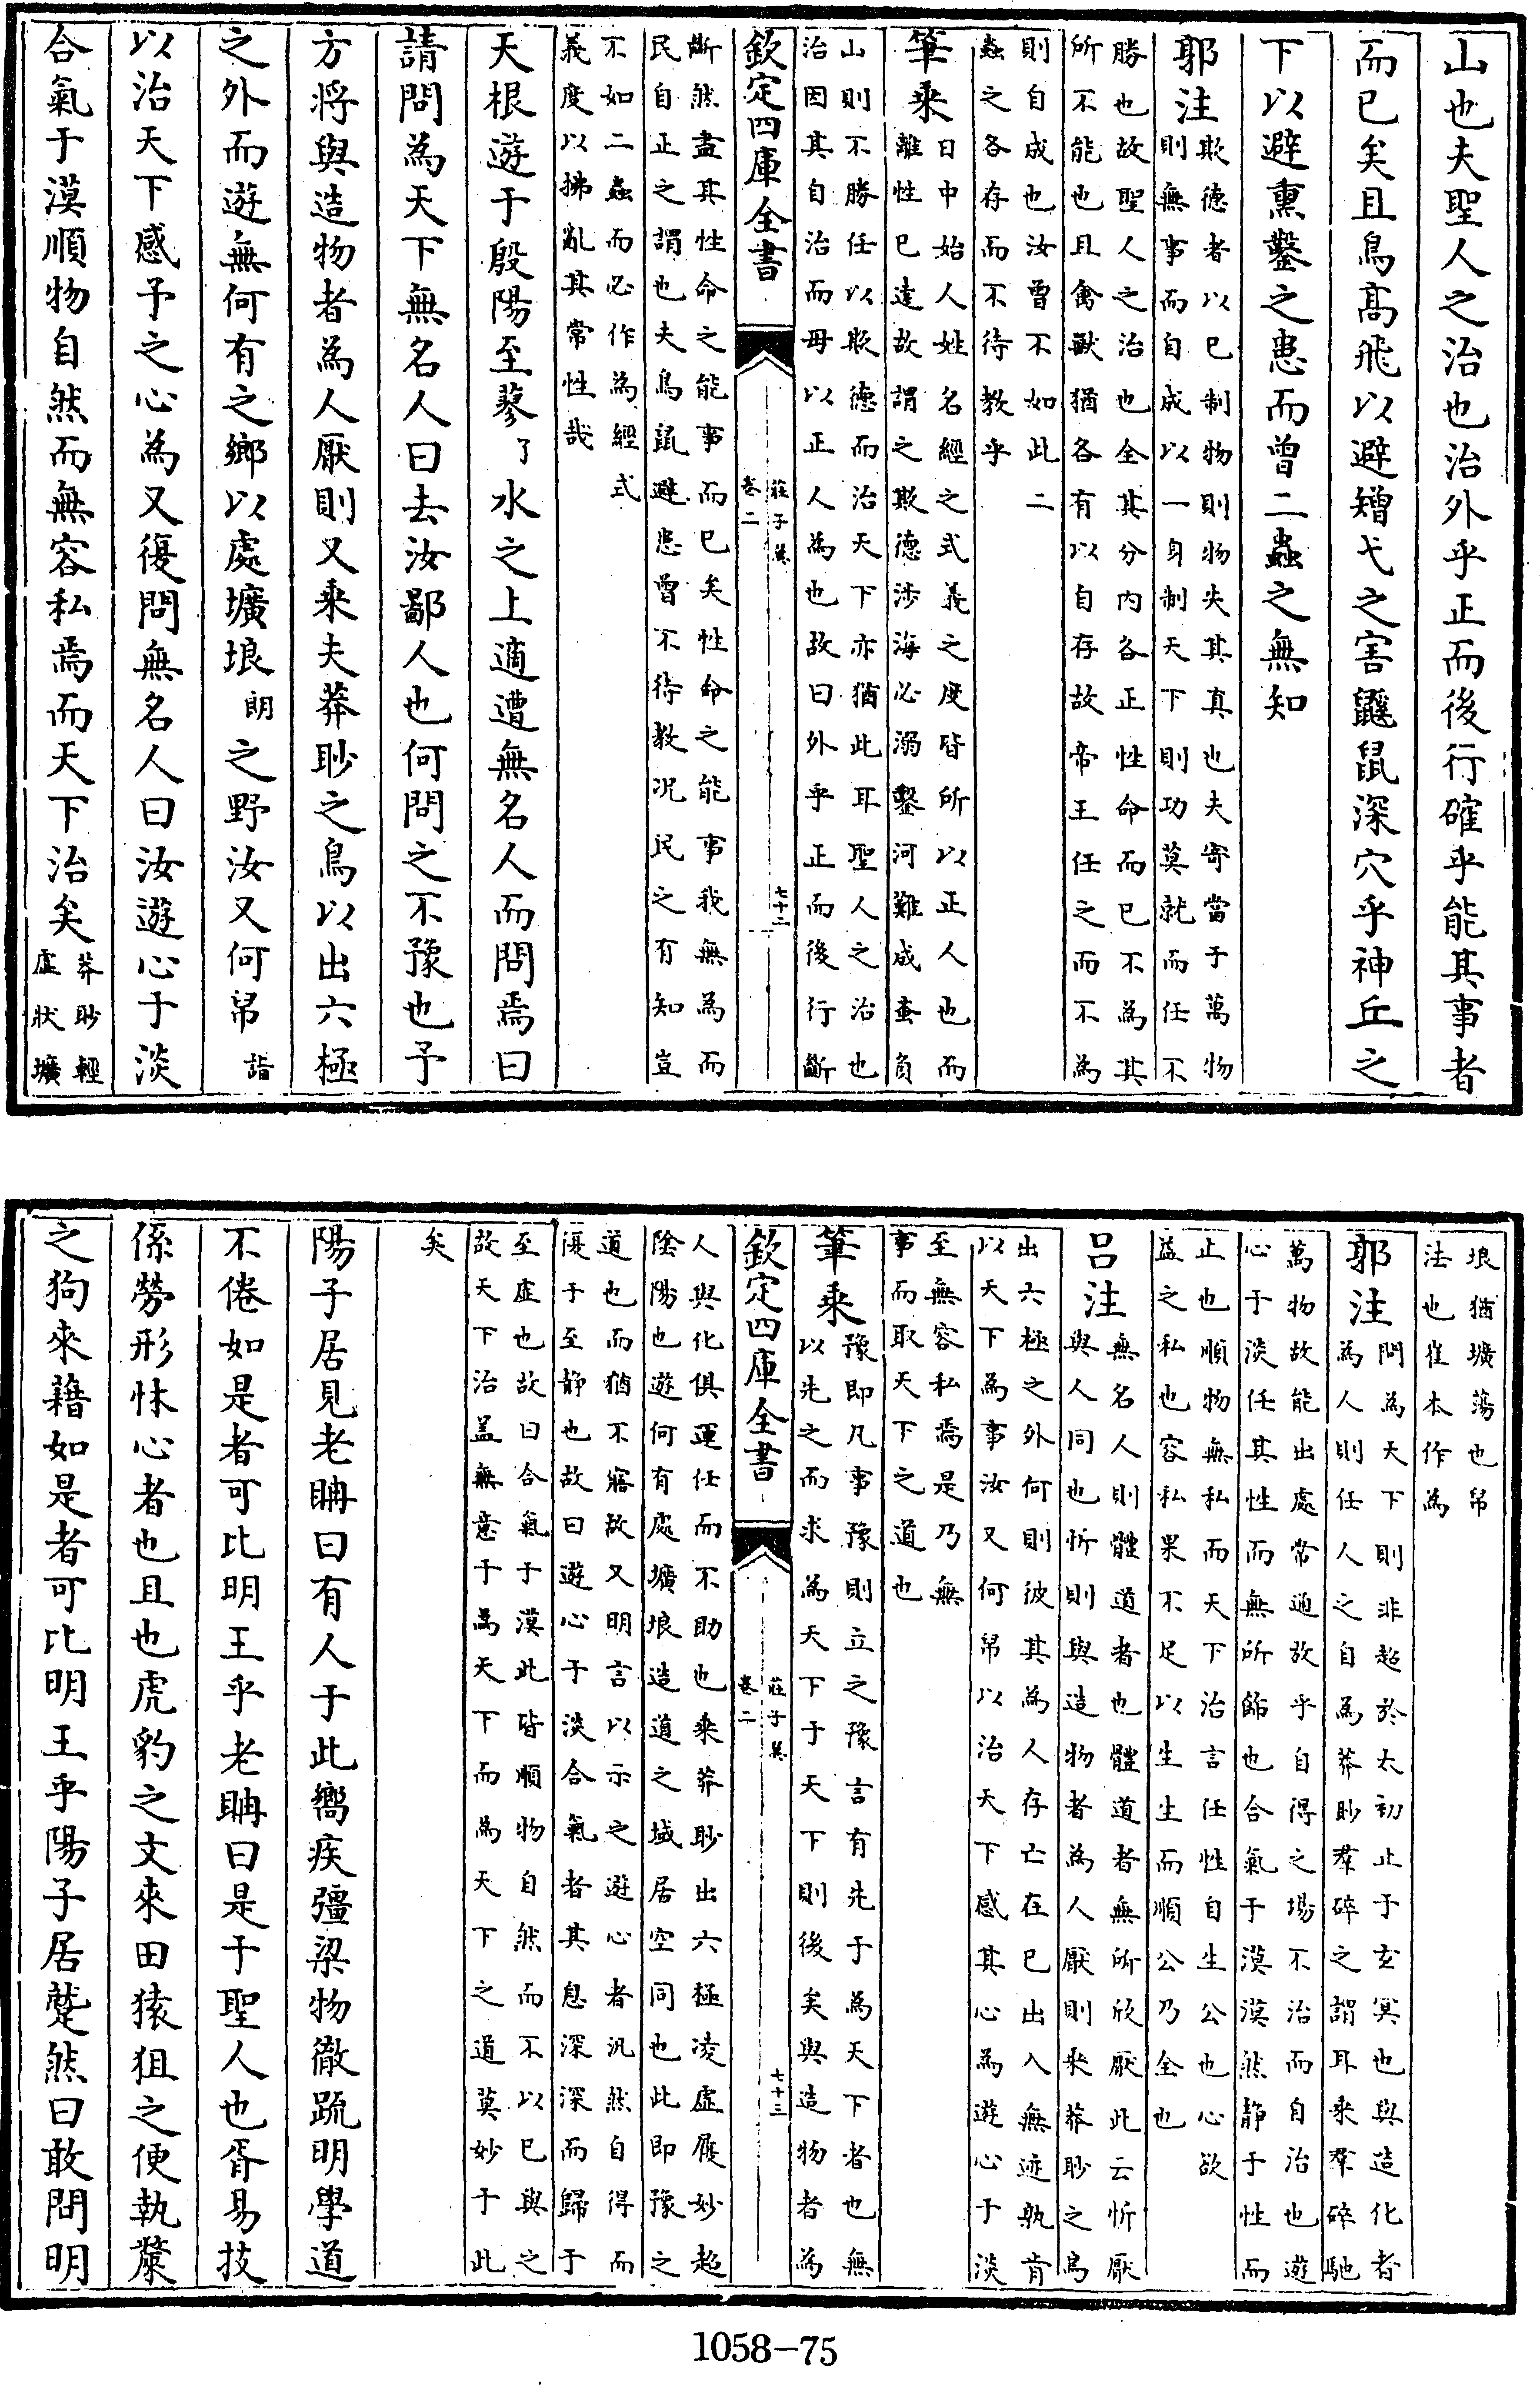 山也夫聖人之治也治外乎正而後行確乎能其事者
而已矣且鳥髙飛以避矰弋之害鼷鼠深穴乎神丘之
下以避熏鑿之患而曾二蟲之無知
郭注
欺德者以已制物則物失其真也夫寄當于萬物
則無事而自成以一身制天下則功莫就而任不
勝也故聖人之治也全其分内各正性命而已不為其
所不能也且禽獸猶各有以自存故帝王任之而不為
則自成也汝曽不如此二
蟲之各存而不待教乎
筆乘
日中始人姓名經之式義之度皆所以正人也而
離性已逺故謂之欺德涉海必溺鑿河難成蚉負
山則不勝任以欺德而治天下亦猶此耳聖人之治也
治因其自治而毋以正人為也故曰外乎正而後行斷
欽定四庫全書
莊子翼
卷二
七十二
斷然盡其性命之能事而已矣性命之能事我無為而
民自正之謂也夫鳥鼠避患曽不待教况民之有知豈
不如二蟲而必作為經式
義度以拂亂其常性哉
天根遊于殷陽至蓼了水之上適遭無名人而問焉曰
請問為天下無名人曰去汝鄙人也何問之不豫也予
方將與造物者為人厭則又乘夫莽眇之鳥以出六極
之外而遊無何有之鄉以處壙埌朗之野汝又何帠詣
以治天下感予之心為又復問無名人曰汝遊心于淡
合氣于漠順物自然而無容私焉而天下治矣
莽眇輕
虛狀壙
埌猶壙蕩也帠
法也崔本作為
郭注
問為天下則非起於太初止于玄冥也與造化者
為人則任人之自為莽眇羣碎之謂耳乘羣碎馳
萬物故能出處常通故乎自得之場不治而自治也遊
心于淡任其性而無所飾也合氣于漠漠然静于性而
止也順物無私而天下治言任性自生公也心欲
益之私也容私果不足以生生而順公乃全也
吕注
無名人則體道者也體道者無所欣厭此云忻厭
與人同也忻則與造物者為人厭則乘莽眇之鳥
出六極之外何則彼其為人存亡在已出入無迹孰肯
以天下為事汝又何帠以治天下感其心為遊心于淡
至無容私焉是乃無
事而取天下之道也
筆乘
豫即凡事豫則立之豫言有先于為天下者也無
以先之而求為天下于天下則後矣與造物者為
欽定四庫全書
莊子翼
卷二
七十三
人與化俱運任而不助也乘莽眇出六極凌虛履妙超
陰陽也遊何有處壙埌造道之域居空同也此即豫之
道也而猶不寤故又明言以示之遊心者汎然自得而
復于至静也故曰遊心于淡合氣者其息深深而歸于
至虛也故曰合氣于漠此皆順物自然而不以已與之
故天下治葢無意于為天下而為天下之道莫妙于此
矣
陽子居見老聃曰有人于此嚮疾彊梁物徹疏明學道
不倦如是者可比明王乎老聃曰是于聖人也胥易技
係勞形怵心者也且也虎豹之文來田猿狙之便執斄
之狗來藉如是者可比明王乎陽子居蹵然曰敢問明
1058-75